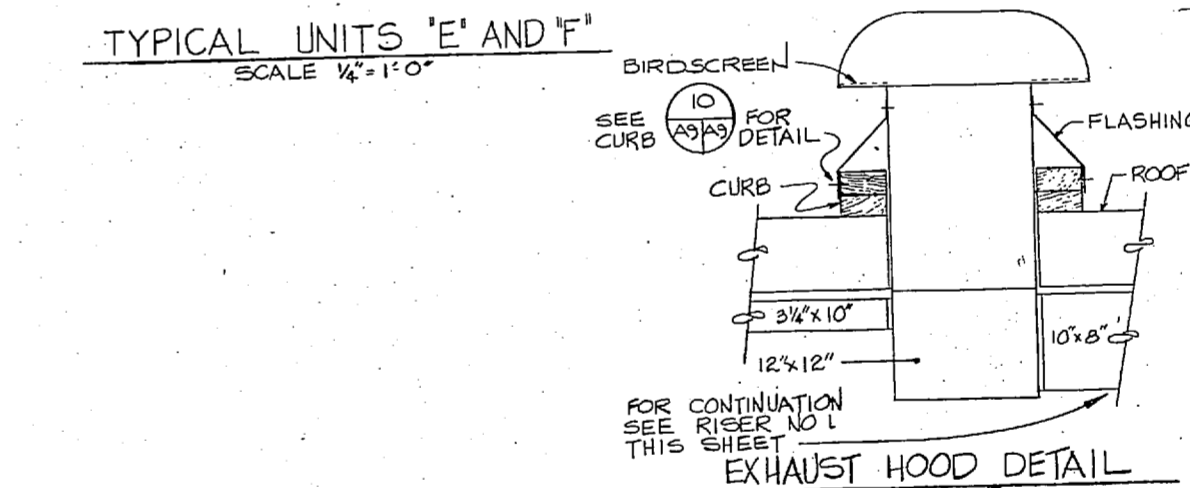 TYPICAL UNITS "E" AND "F"
SCALE 1/4" = 1'-0"
BIRDSCREEN
SEE 10 FOR
CURB A9 A9 DETAIL
FLASHING
CURB
ROOF
3 1/4" x 10"
10" x 8"
12" x 12"
FOR CONTINUATION
SEE RISER NO 1
THIS SHEET
EXHAUST HOOD DETAIL